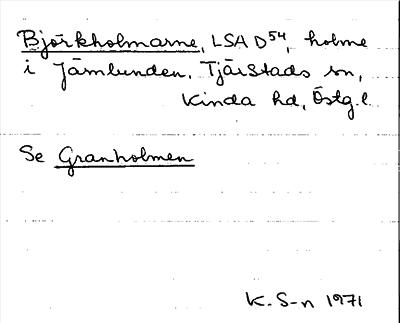 Björkholmarne, LSA D54, holme
i Järnlunden, Tjärstads sn,
Kinda hd, Östg. l.
Se Granholmen
K. S-n 1971